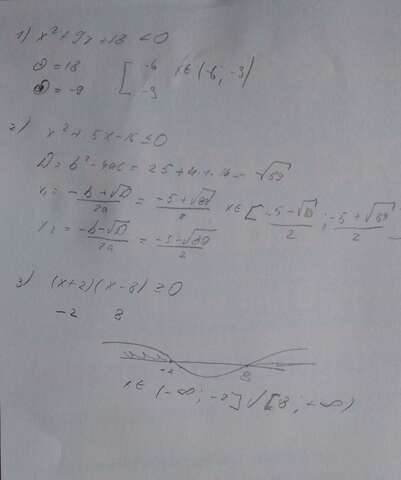 1) x²+9x+18 <0
∂=18 [ -6 x∈(-6; -3)
∂=-9 -3
2) x²+5x-16≤0
D=b²-4ac=25+4·1·16=√89
x₁=(-b+√D)/2a=(-5+√89)/2 x∈[(-5-√D)/2;(-5+√89)/2]
x₂=(-b-√D)/2a=(-5-√89)/2
3) (x+2)(x-8)≥0
-2 8
-2 8
x∈(-∞;-2]∪[8;+∞)